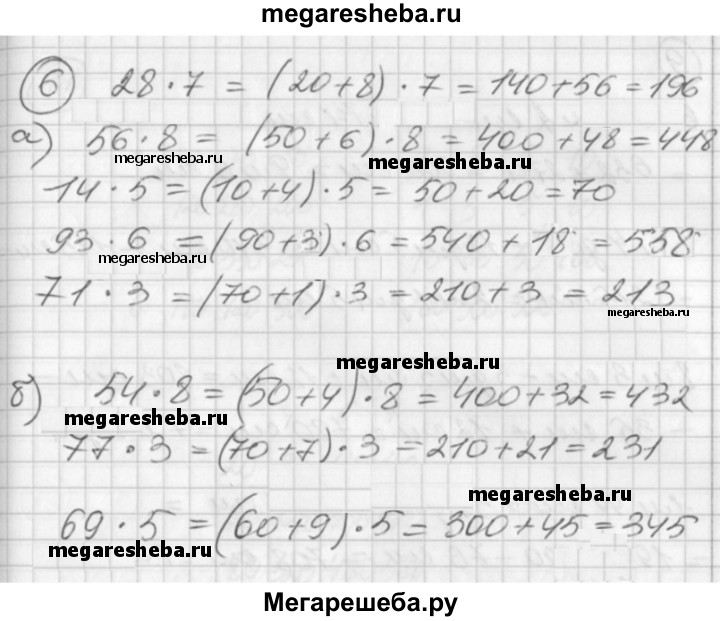 megaresheba.ru
6 28 · 7 = (20+8) · 7 = 140+56 = 196
а) 56 · 8 = (50+6) · 8 = 400+48 = 448
megaresheba.ru
megaresheba.ru
14 · 5 = (10+4) · 5 = 50+20 = 70
93 · 6 = (90+3) · 6 = 540+18 = 558
megaresheba.ru
71 · 3 = (70+1) · 3 = 210+3 = 213
megaresheba.ru
megaresheba.ru
б) 54 · 8 = (50+4) · 8 = 400+32 = 432
megaresheba.ru
77 · 3 = (70+7) · 3 = 210+21 = 231
megaresheba.ru
69 · 5 = (60+9) · 5 = 300+45 = 345
megaresheba.ru
Мегарешеба.ру